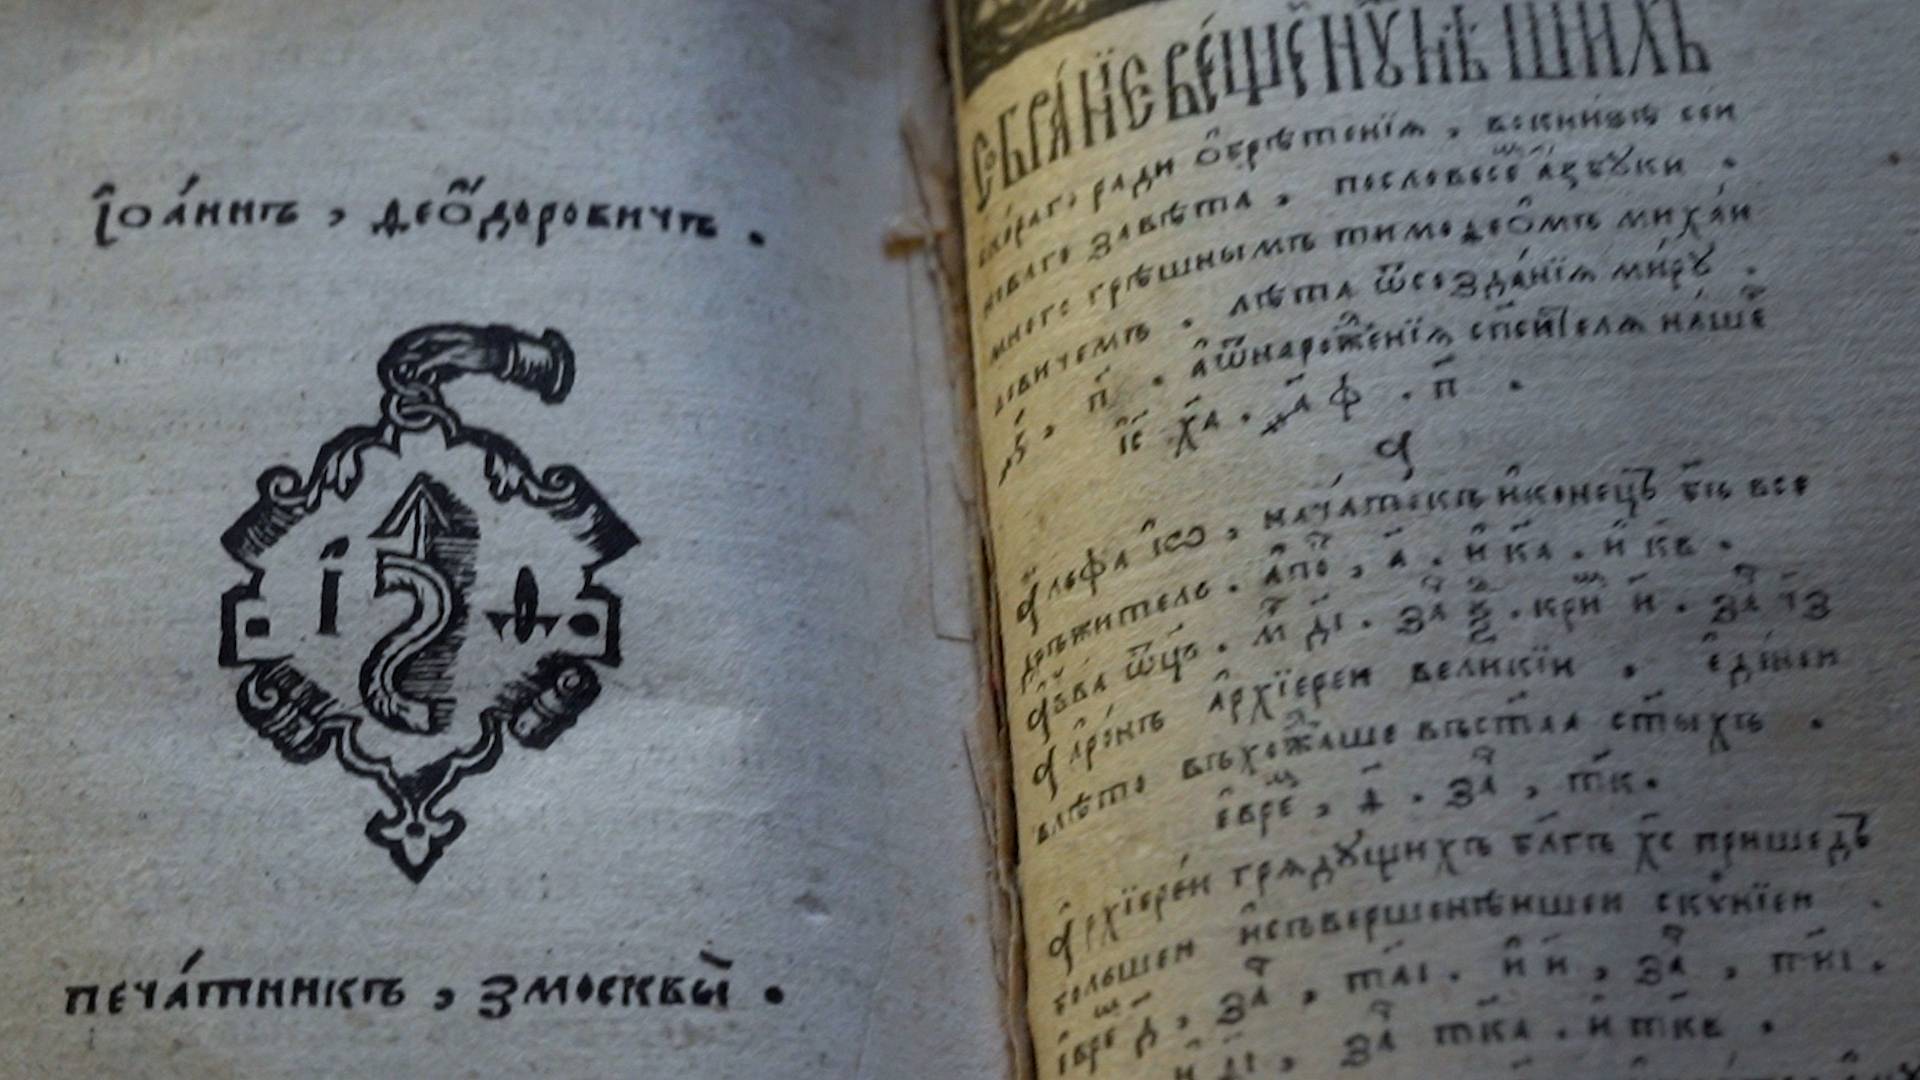 Їѡа́ннъ , Ѳео́дорови́чъ .
І Ѳ
печа́тникъ , Змосквы̀ .
Събра́нїе ве́щеи нꙋ́жнѣишихъ
скораго ради ѡбрѣтенїѧ , вкнизѣ сеи
новаго завѣта , пословесѡ́ азбꙋки .
много грѣшнымъ тимоѳеомъ миха́и
ловичемъ . лѣта ѿ созда́нїѧ ми́рꙋ .
҂зп҃ . аѿ нароженїѧ сп҃ситела на́ше
і҃с х҃а . ҂а҃ф . п҃ .
а
Алъфа и҆ ѡ , нача́токъ и҆ коне́цъ б҃ъ все
дръжитель . а҆по , а҃ . и҆ к҃а . и҆ к҃в .
А҆вва ѿц҃ъ . м҃ д҃і . за ѯ҃ . кри и҃ . за ч҃з
А҆аро́нъ а҆рхїереи великїи . е҆ди́нои
влѣто въхождаше въст҃аа ст҃ыхъ .
е҆вре , д҃ . за , т҃к .
А҆рхїере́и грѧдꙋщихъ бл҃гъ х҃с пришедъ
большеи и҆ съвершенѣишеи скинїеи .
е҆вре д҃ , за , т҃аі . и҆ и҃ , за , т҃иі .
и҆ д҃і , за т҃ка . и҆ т҃кв .